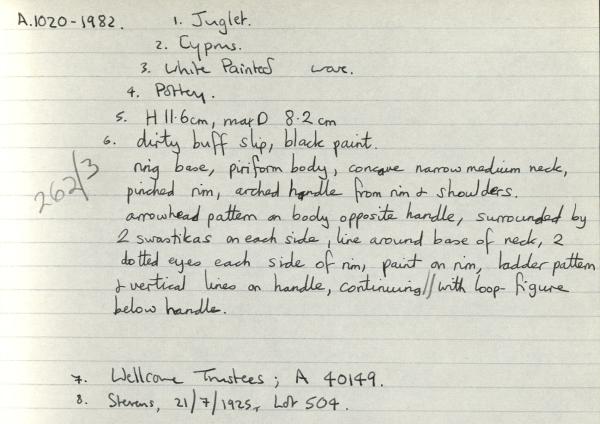 A.1020-1982. 1. Juglet.
2. Cyprus.
3. White Painted ware.
4. Pottery.
5. H 11.6cm, max D 8.2 cm
6. dirty buff slip, black paint.
ring base, piriform body, concave narrow medium neck,
pinched rim, arched handle from rim & shoulders.
arrowhead pattern on body opposite handle, surrounded by
2 swastikas on each side, line around base of neck, 2
dotted eyes each side of rim, paint on rim, ladder pattern
& vertical lines on handle, continuing // with loop-figure
below handle.
262/3
7. Wellcome Trustees; A 40149.
8. Stevens, 21/7/1925, Lot 504.